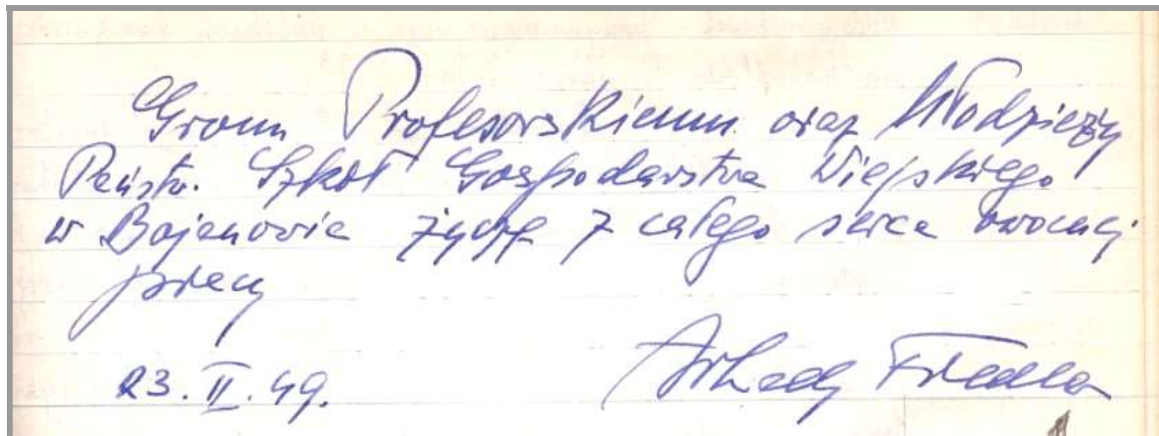 Gronu Profesorskiemu oraz Młodzieży
Państw. Szkół Gospodarstwa Wiejskiego
w Bojanowie życzę z całego serca owocnej
pracy
23.II.49.
Arkady Fiedler